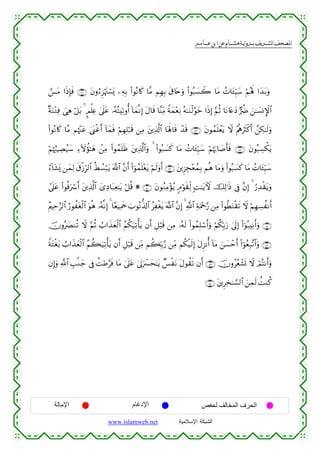 المصحف الشريف برواية هشام عن ابن عامر
وَبَدَا لَهُمْ سَيِّـَٔاتُ مَا كَسَبُوا۟ وَحَاقَ بِهِم مَّا كَانُوا۟ بِهِۦ يَسْتَهْزِءُونَ فَإِذَا مَسَّ
ٱلْإِنسَٰنَ ضُرٌّ دَعَانَا ثُمَّ إِذَا خَوَّلْنَٰهُ نِعْمَةً مِّنَّا قَالَ إِنَّمَآ أُوتِيتُهُۥ عَلَىٰ عِلْمٍۭ بَلْ هِىَ فِتْنَةٌ
وَلَٰكِنَّ أَكْثَرَهُمْ لَا يَعْلَمُونَ قَدْ قَالَهَا ٱلَّذِينَ مِن قَبْلِهِمْ فَمَآ أَغْنَىٰ عَنْهُم مَّا كَانُوا۟
يَكْسِبُونَ فَأَصَابَهُمْ سَيِّـَٔاتُ مَا كَسَبُوا۟ وَٱلَّذِينَ ظَلَمُوا۟ مِنْ هَٰٓؤُلَآءِ سَيُصِيبُهُمْ
سَيِّـَٔاتُ مَا كَسَبُوا۟ وَمَا هُم بِمُعْجِزِينَ أَوَلَمْ يَعْلَمُوٓا۟ أَنَّ ٱللَّهَ يَبْسُطُ ٱلرِّزْقَ لِمَن يَشَآءُ
وَيَقْدِرُ إِنَّ فِى ذَٰلِكَ لَءَايَٰتٍ لِّقَوْمٍ يُؤْمِنُونَ قُلْ يَٰعِبَادِىَ ٱلَّذِينَ أَسْرَفُوا۟ عَلَىٰٓ
أَنفُسِهِمْ لَا تَقْنَطُوا۟ مِن رَّحْمَةِ ٱللَّهِ إِنَّ ٱللَّهَ يَغْفِرُ ٱلذُّنُوبَ جَمِيعًا إِنَّهُۥ هُوَ ٱلْغَفُورُ ٱلرَّحِيمُ
وَأَنِيبُوٓا۟ إِلَىٰ رَبِّكُمْ وَأَسْلِمُوا۟ لَهُۥ مِن قَبْلِ أَن يَأْتِيَكُمُ ٱلْعَذَابُ ثُمَّ لَا تُنصَرُونَ
وَٱتَّبِعُوٓا۟ أَحْسَنَ مَآ أُنزِلَ إِلَيْكُم مِّن رَّبِّكُم مِّن قَبْلِ أَن يَأْتِيَكُمُ ٱلْعَذَابُ بَغْتَةً
وَأَنتُمْ لَا تَشْعُرُونَ أَن تَقُولَ نَفْسٌ يَٰحَسْرَتَىٰ عَلَىٰ مَا فَرَّطتُ فِى جَنۢبِ ٱللَّهِ وَإِن
كُنتُ لَمِنَ ٱلسَّٰخِرِينَ
الحرف المخالف لحفص الإدغام الإمالة
الشبكة الإسلامية www.islamweb.net